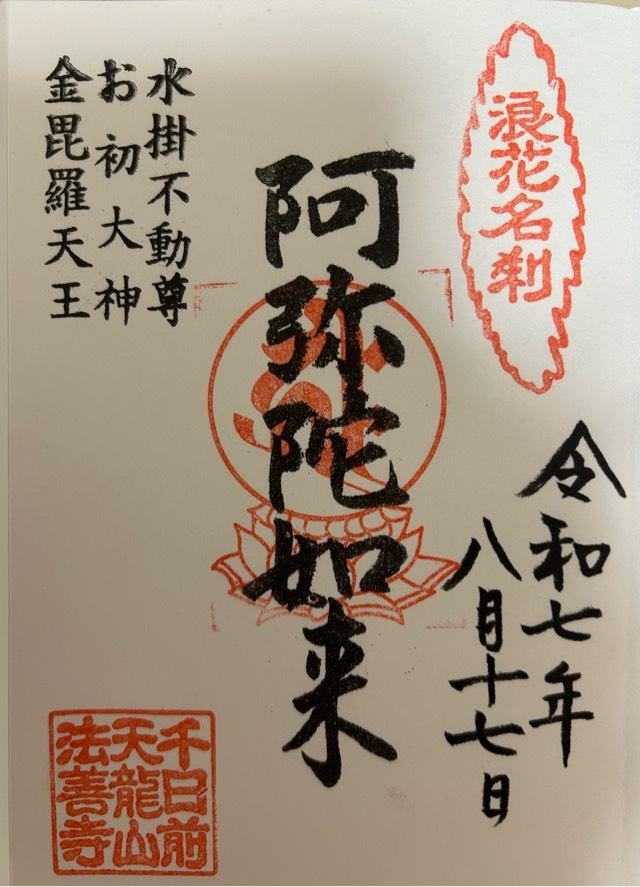 浪花名刹
令和七年
八月十七日
阿弥陀如来
水掛不動尊
お初大神
金毘羅天王
千日前
天龍山
法善寺